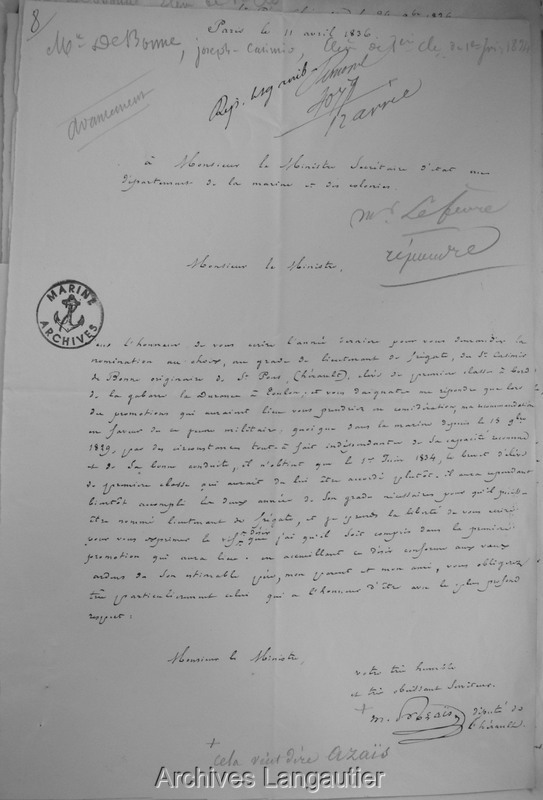 8
Paris le 11 avril 1836.
Mr DeBonne, joseph-Casimir, de 1ère cle, du 1er juin 1834
avancement
à Monsieur le Ministre Secrétaire d'état au
département de la marine et des colonies.
Mr Lefèvre
répondre
Monsieur le Ministre,
MARINE
ARCHIVES
l'honneur de vous écrire l'année dernière pour vous demander la
nomination au choix, au grade de lieutenant de frégate, du Sr Casimir
de Bonne originaire de St Pons, (hérault), élève de première classe à bord
de la gabare la Durance à Toulon; et vous daignates me répondre que lors
des promotions qui auraient lieu vous prendriez en considération, ma recommandation
en faveur de ce jeune militaire; quoique dans la marine depuis le 18 9bre
1829, par des circonstances tout-à-fait indépendantes de sa capacité reconnue
et de sa bonne conduite, il n'obtint que le 1er Juin 1834, le brevet d'élève
de première classe qui aurait du lui être accordé plutôt. il aura cependant
bientôt accompli les deux années de son grade nécessaires pour qu'il puisse
être nommé lieutenant de frégate, et je prends la liberté de vous écrire
pour vous exprimer le vif désir que j'ai qu'il soit compris dans la première
promotion qui aura lieu. en accueillant ce désir conforme aux vœux
ardens de son estimable père, mon parent et mon ami, vous obligerez
très particulièrement celui qui a l'honneur d'être avec le plus profond
respect:
Monsieur le Ministre,
votre très humble
et très obéissant Serviteur.
+
député de
l'hérault.
+ cela veut dire azaïs
Archives Langautier